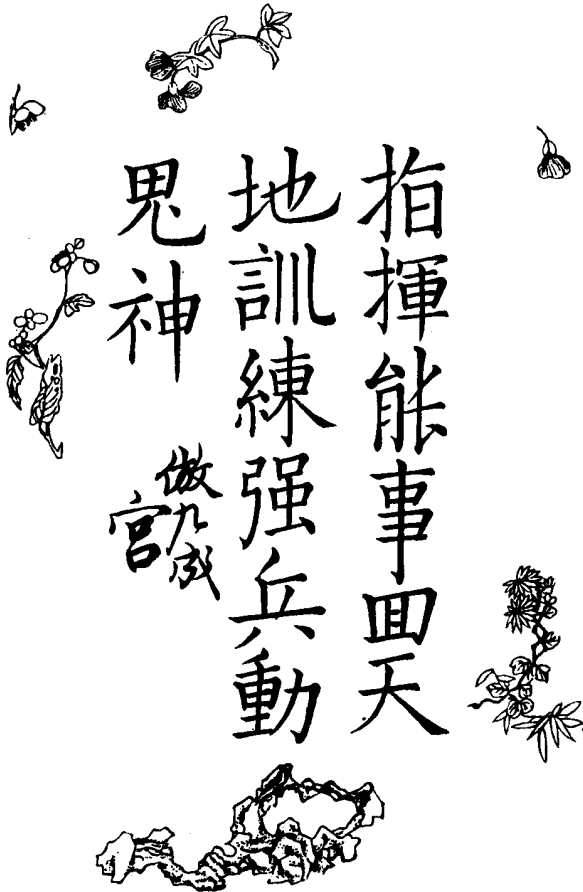 指揮能事回天
地訓練强兵動
鬼神
倣九成
宮